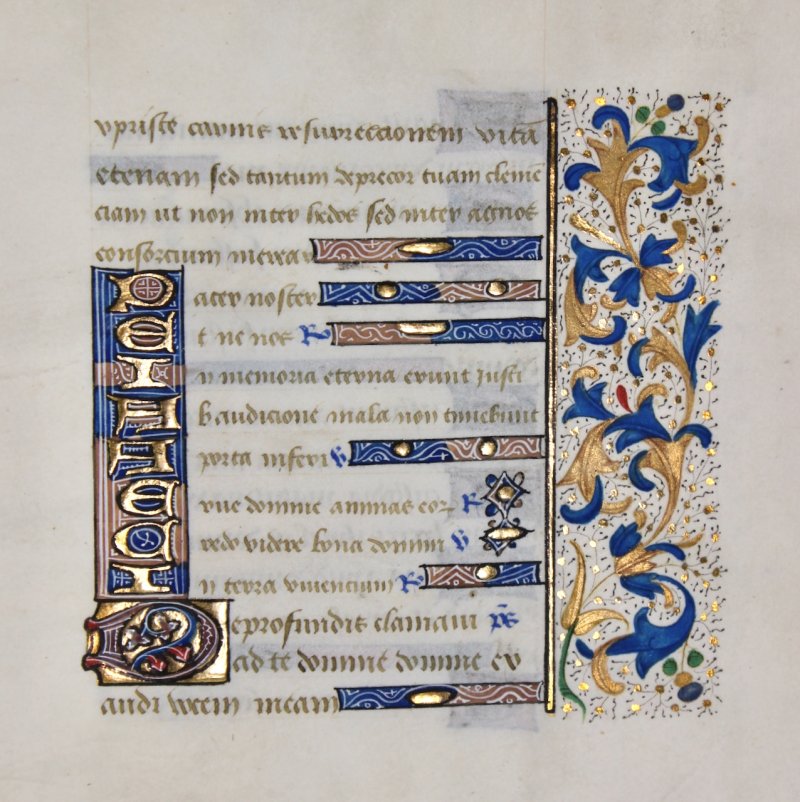 xpriste carnis resurreccionem vitā
eternam sed tantum deprecor tuam clemē
ciam ut non inter hedos sed inter agnos
consorcium merear
Pater noster
Et ne nos R
In memoria eterna erunt iusti
Ab audicione mala non timebunt
A porta inferi V
Erue domine animas eoꝝ R
Credo videre bona domini V
In terra viventium R
De profundis clamavi ps
ad te domine domine ex
audi vocem meam